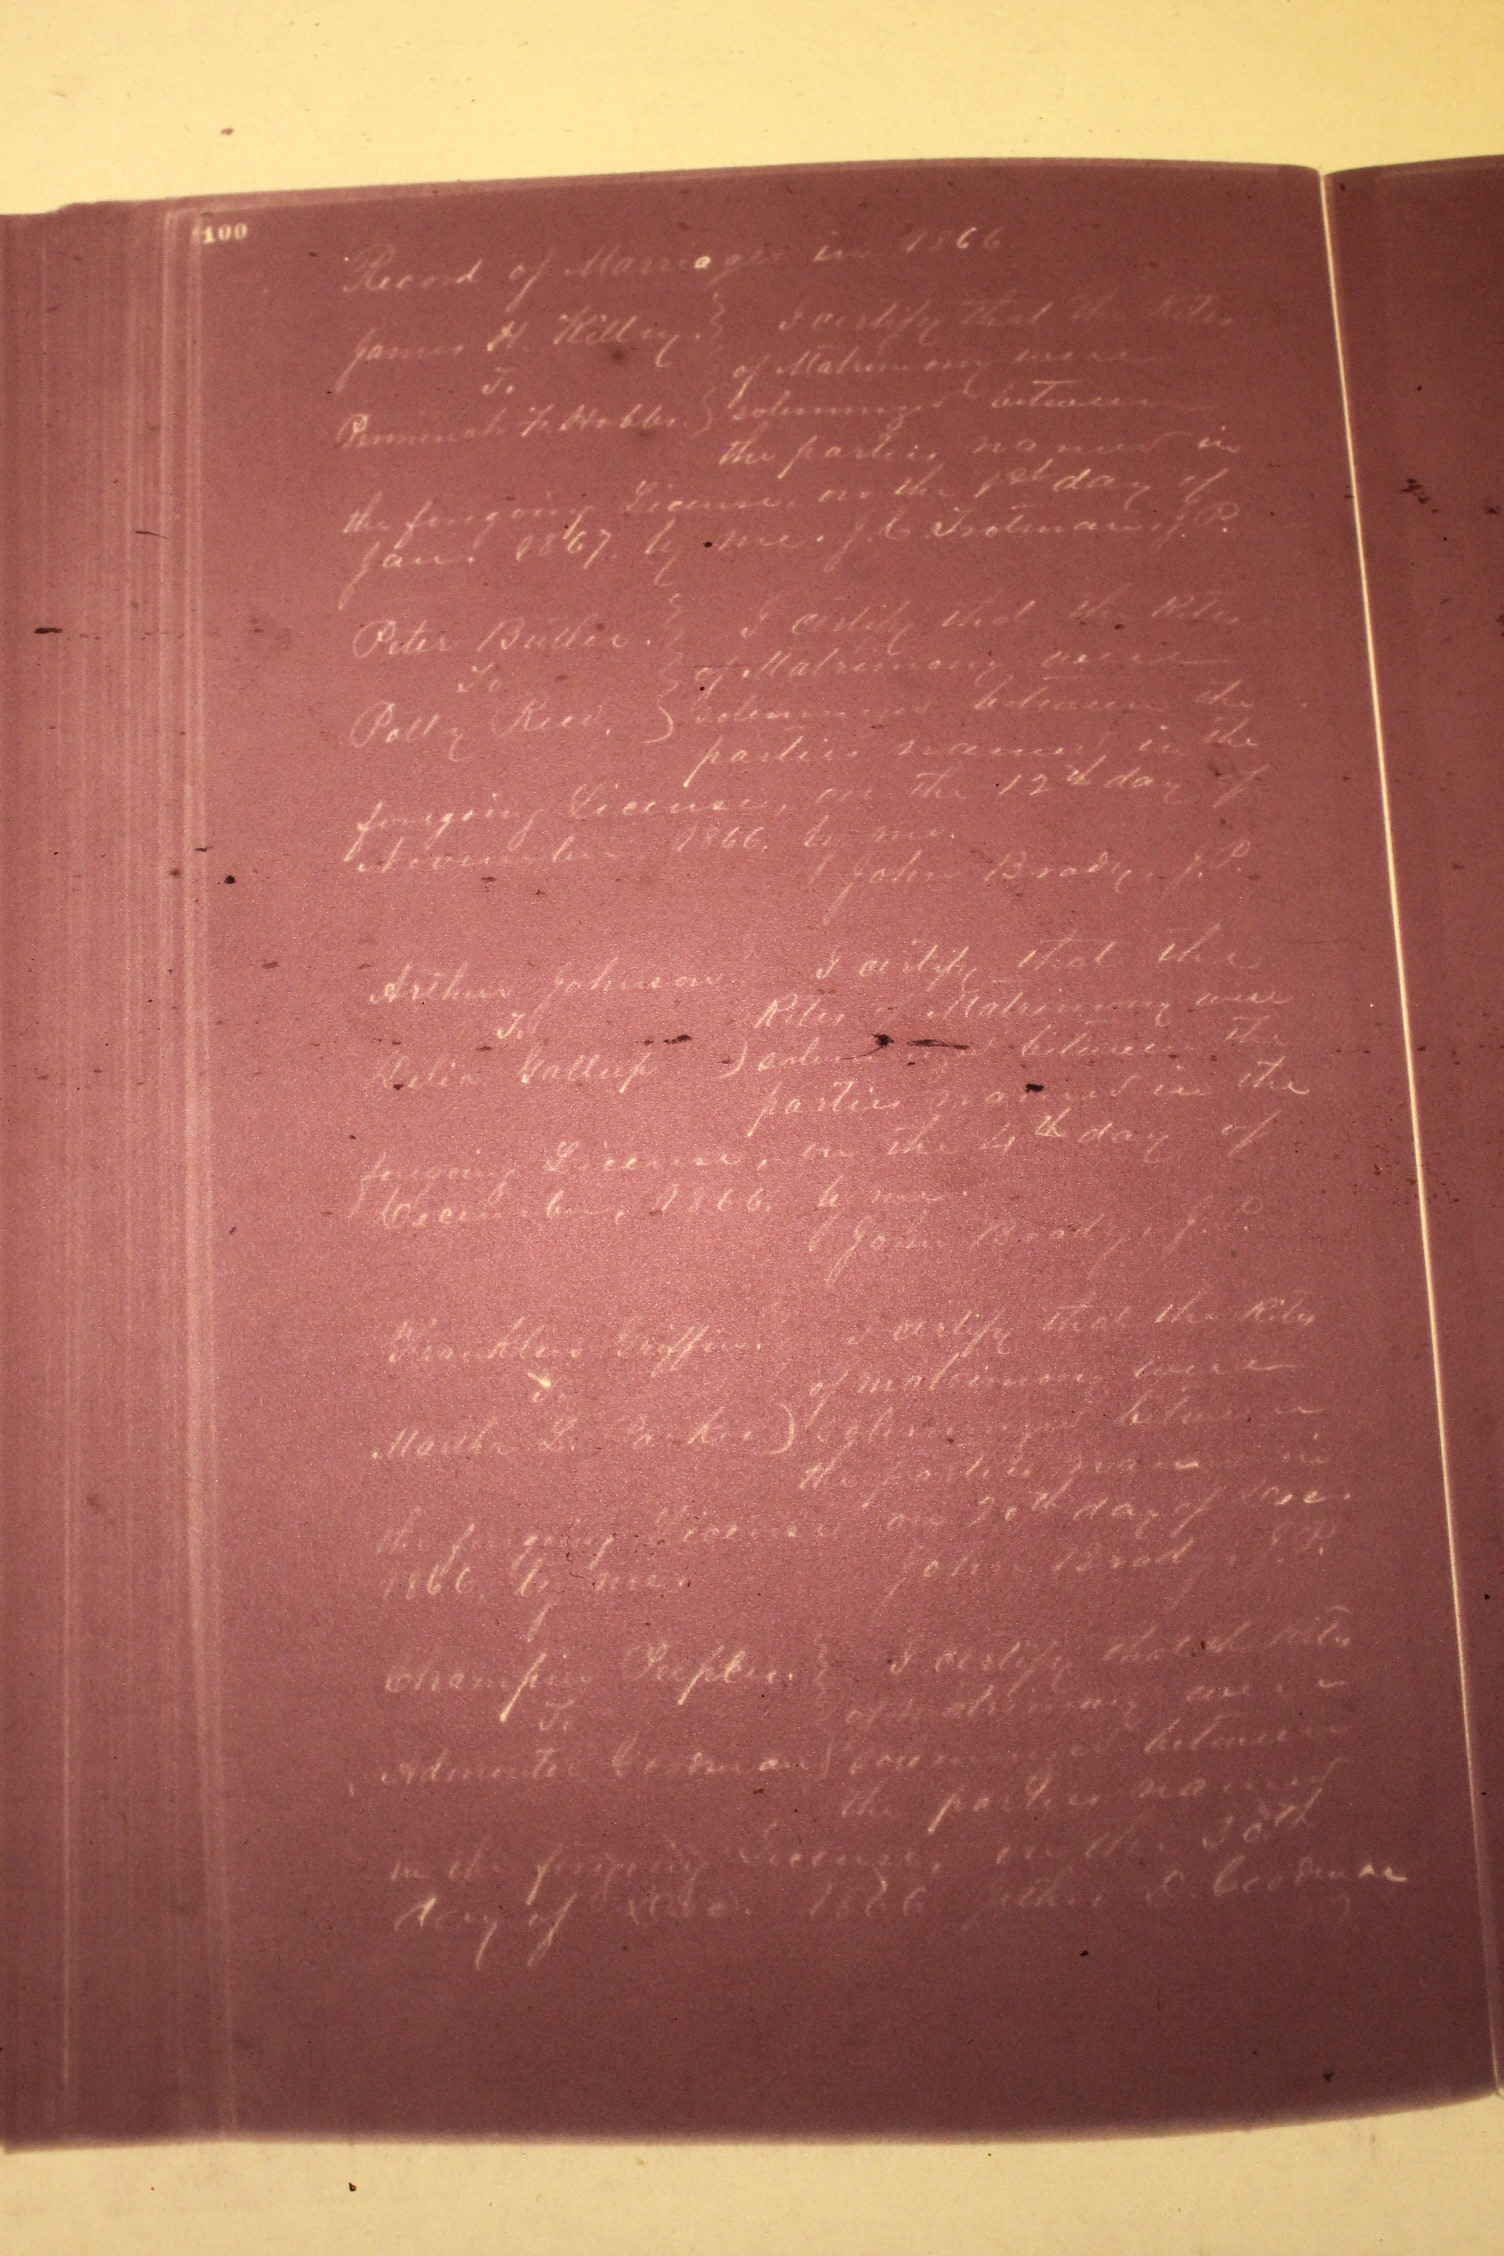 100
Record of Marriages in 1866.
James H. Hilley. I certify that the Rites
To of Matrimony were
F. Hobbs. solemnized between
the parties named in
the forgoing License, on the 1st day of
Jan. 1867. by me. J. C. Trotman, J. P.
Peter Butler. I certify that the Rites
To of Matrimony were
Polly Reed. solemnized between the
parties named in the
forgoing License, on the 12th day of
November 1866. by me.
John Brady, J. P.
Arthur Johnson I certify that the
To Rites of Matrimony were
Delia Gallup between the
parties named in the
forgoing License, on the 4th day of
December, 1866. by me.
John Brady, J. P.
Franklin Griffin. I certify that the Rites
To of matrimony were
Martha L. Parker solemnized between
the parties named in
the forgoing License on 20th day of Dec.
1866. by me. John Brady, J. P.
Champion Peoples. I certify that the Rites
To of matrimony were
Goodman solemnized between
the parties named
in the forgoing License, on the 30th
day of Dec. 1866. D. Goodman